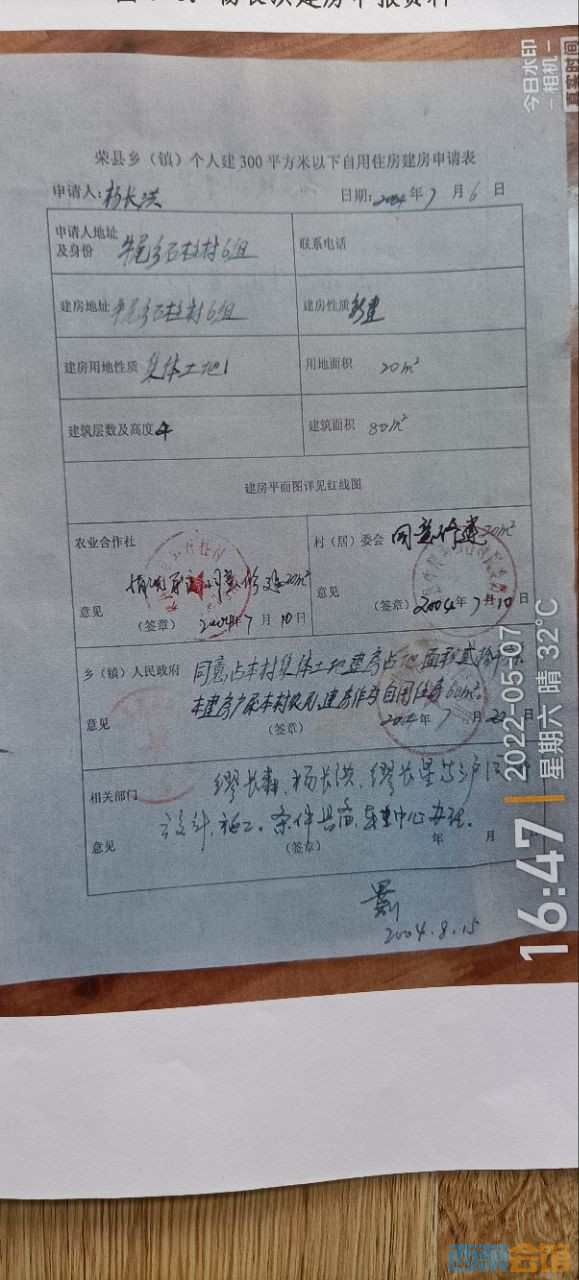 荣县乡（镇）个人建300平方米以下自用住房建房申请表
申请人：杨长洪 日期：2004年7月6日
申请人地址及身份 牛尾乡石柱村6组 联系电话
建房地址 牛尾乡石柱村6组 建房性质 新建
建房用地性质 集体土地 用地面积 20m²
建筑层数及高度 4 建筑面积 80m²
建房平面图详见红线图
农业合作社 村（居）委会 同意修建20m²
同意修建20m²
意见 意见
（签章） 2004年7月10日 （签章） 2004年7月10日
乡（镇）人民政府 同意占本村集体土地建房占地面积贰拾
本建房户系本村农民，建房作为自用住房60m²。
意见 （签章） 2004年7月22日
相关部门 缪长森、杨长洪、缪长星等三户
设计、施工。条件具备，中心办理。
意见 （签章） 年 月
2004.8.15
今日水印
-相机-
真实时间
16:47
2022-05-07
星期六 晴 32℃
西秦会馆